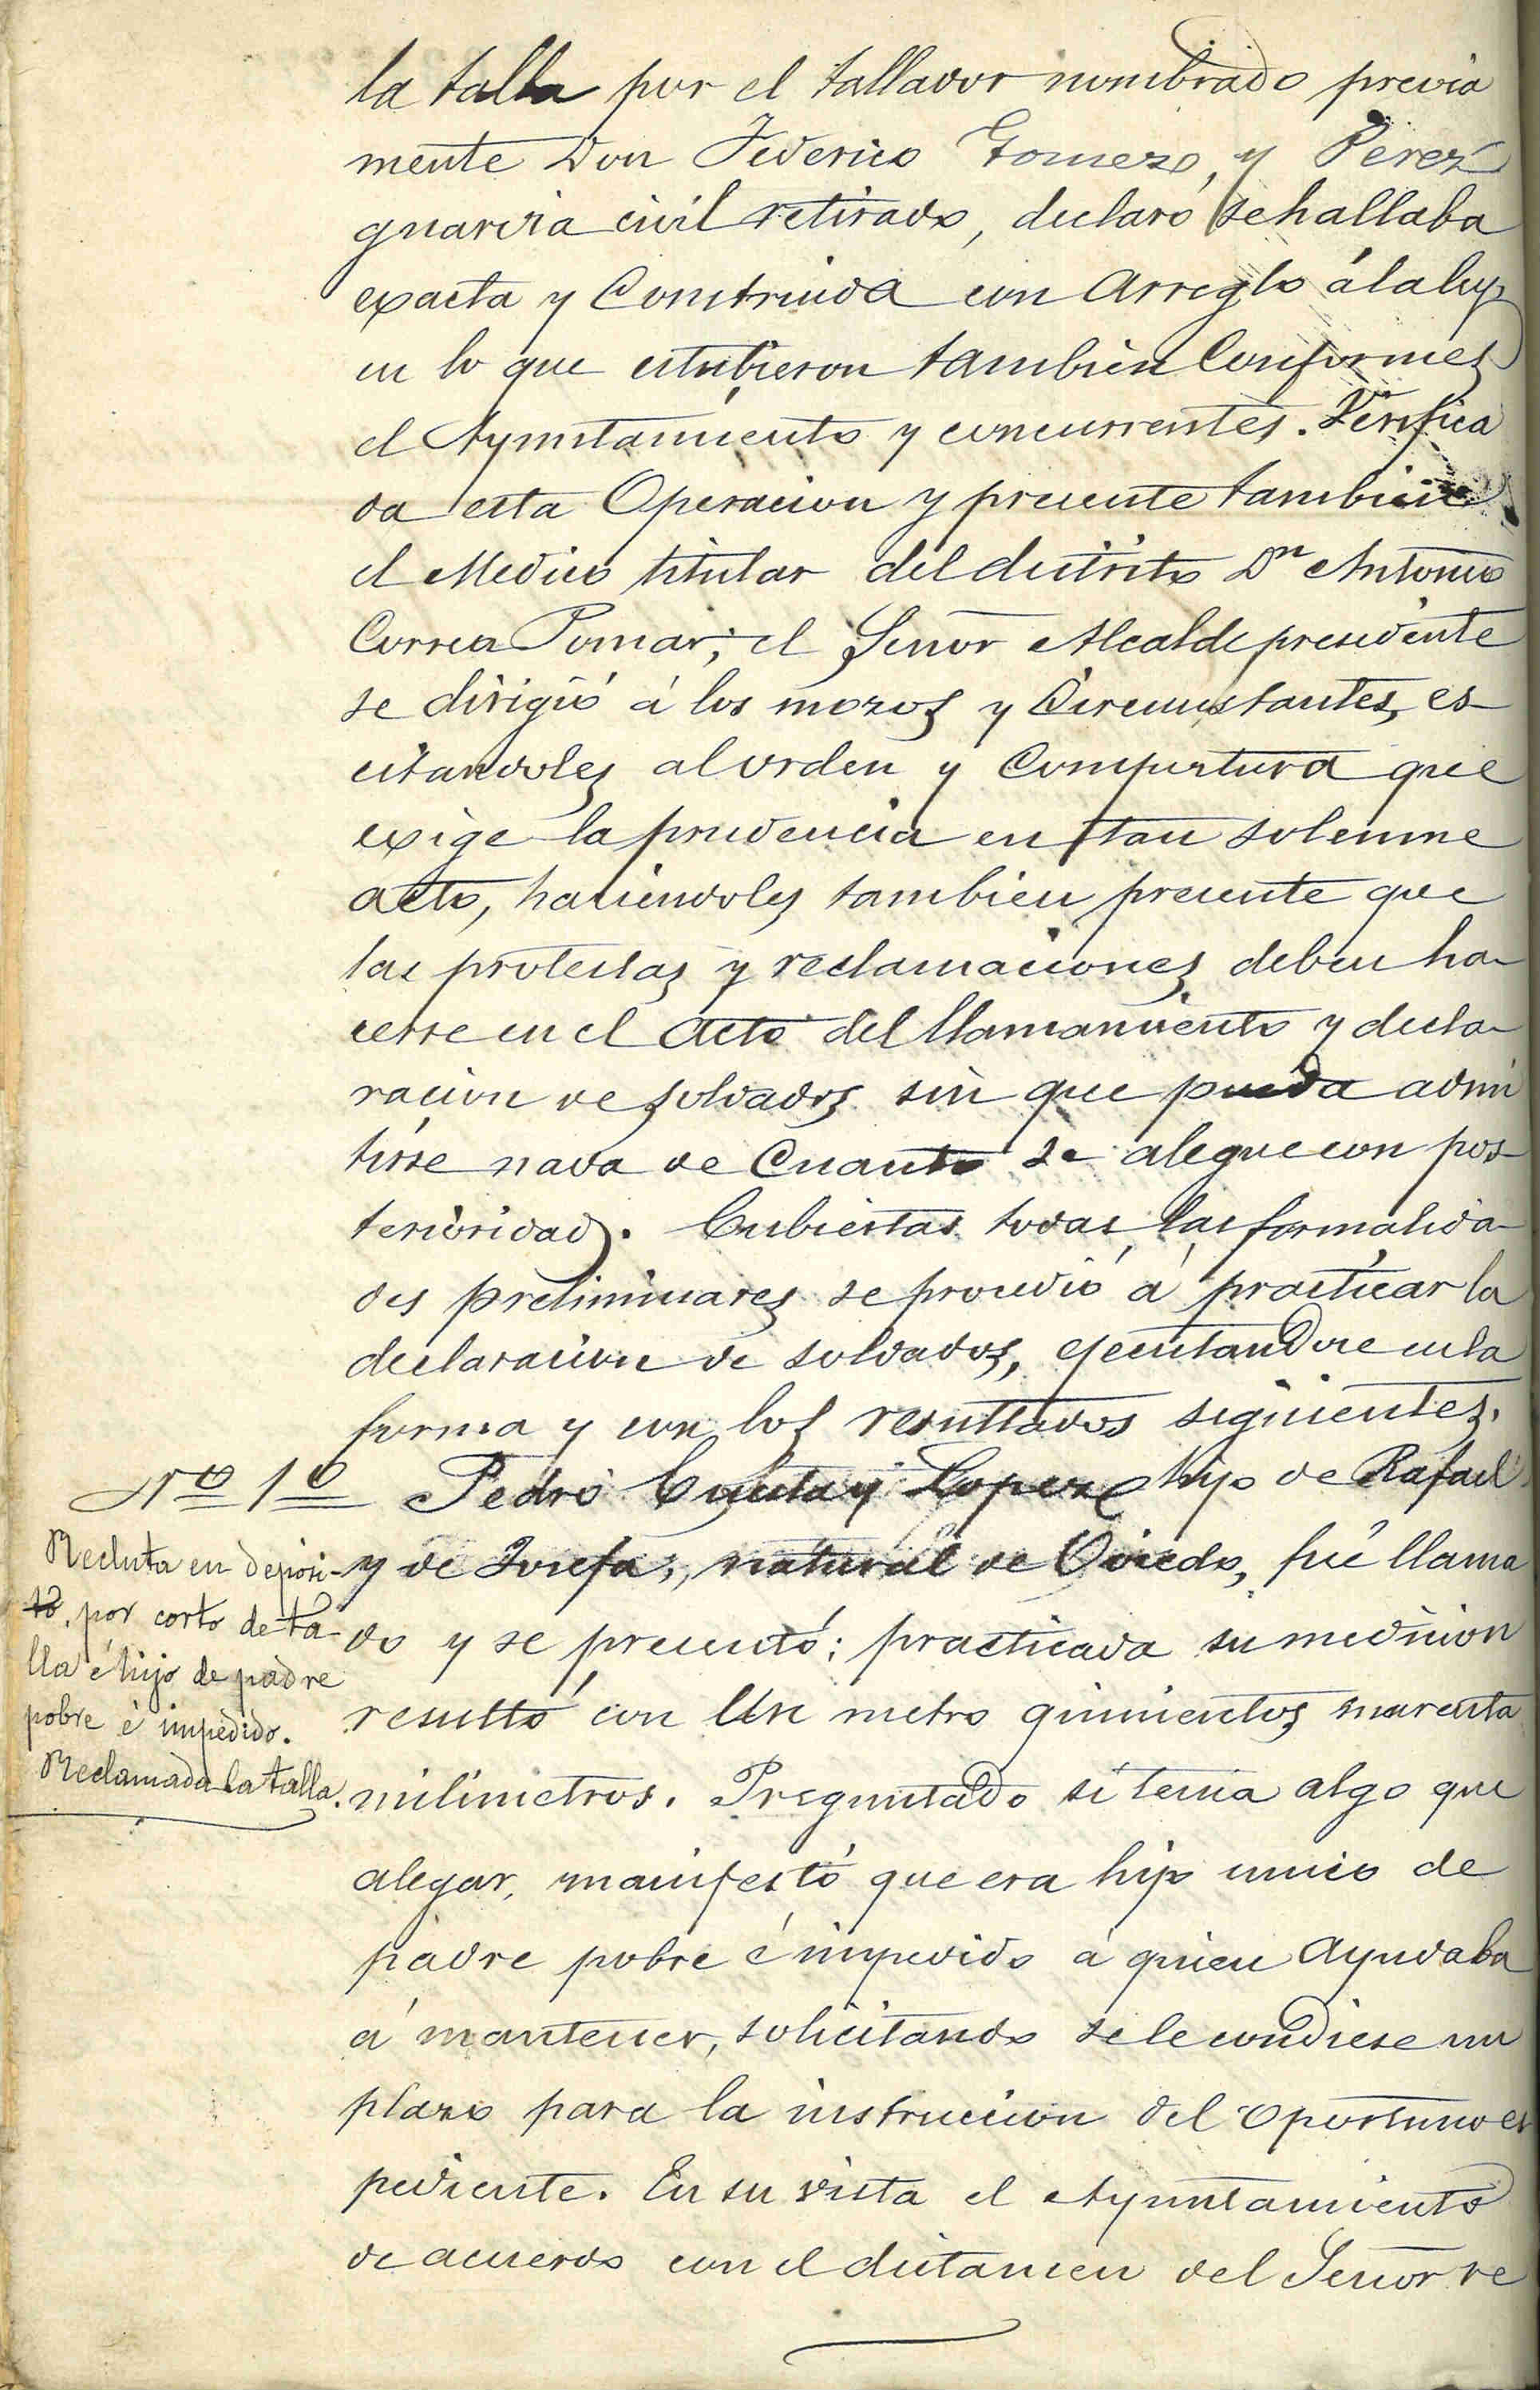 la talla por el tallador nombrado previa
mente Don Federico Gomez, y Perez
guardia civil retirado, declaró se hallaba
exacta y Construida con Arreglo á la ley,
en lo que estubieron tambien Conformes
el Ayuntamiento y concurrentes. Verifica
da esta Operacion y presente tambien
el Medico titular del distrito Dn Antonio
Correa Pomar, el Señor Alcalde presidente
se dirigió á los mozos y Circunstantes, es-
citandoles al orden y Compostura que
exige la prudencia en tan solemne
acto, haciendoles tambien presente que
las protestas y reclamaciones deben ha-
cerse en el Acto del llamamiento y decla-
racion de soldados sin que pueda admi
tirse nada de Cuanto se alegue con pos-
terioridad. Cubiertas todas las formalida-
des preliminares se procedió á practicar la
declaracion de soldados, ejecutandose en la
forma y con los resultados siguientes.
Nº 1º Pedro y Lopez hijo de Rafael
y de Josefa, natural de Oviedo, fué llama
do y se presentó; practicada su medicion
resultó con Un metro quinientos cuarenta
milimetros. Preguntado si tenia algo que
alegar, manifestó que era hijo unico de
padre pobre é impedido á quien Ayudaba
á mantener, solicitando se le concediese un
plazo para la instruccion del Oportuno es
pediente. En su vista el Ayuntamiento
de acuerdo con el dictamen del Señor re
Recluta en deposi-
to, por corto de ta-
lla é hijo de padre
pobre é impedido.
Reclamada la talla.